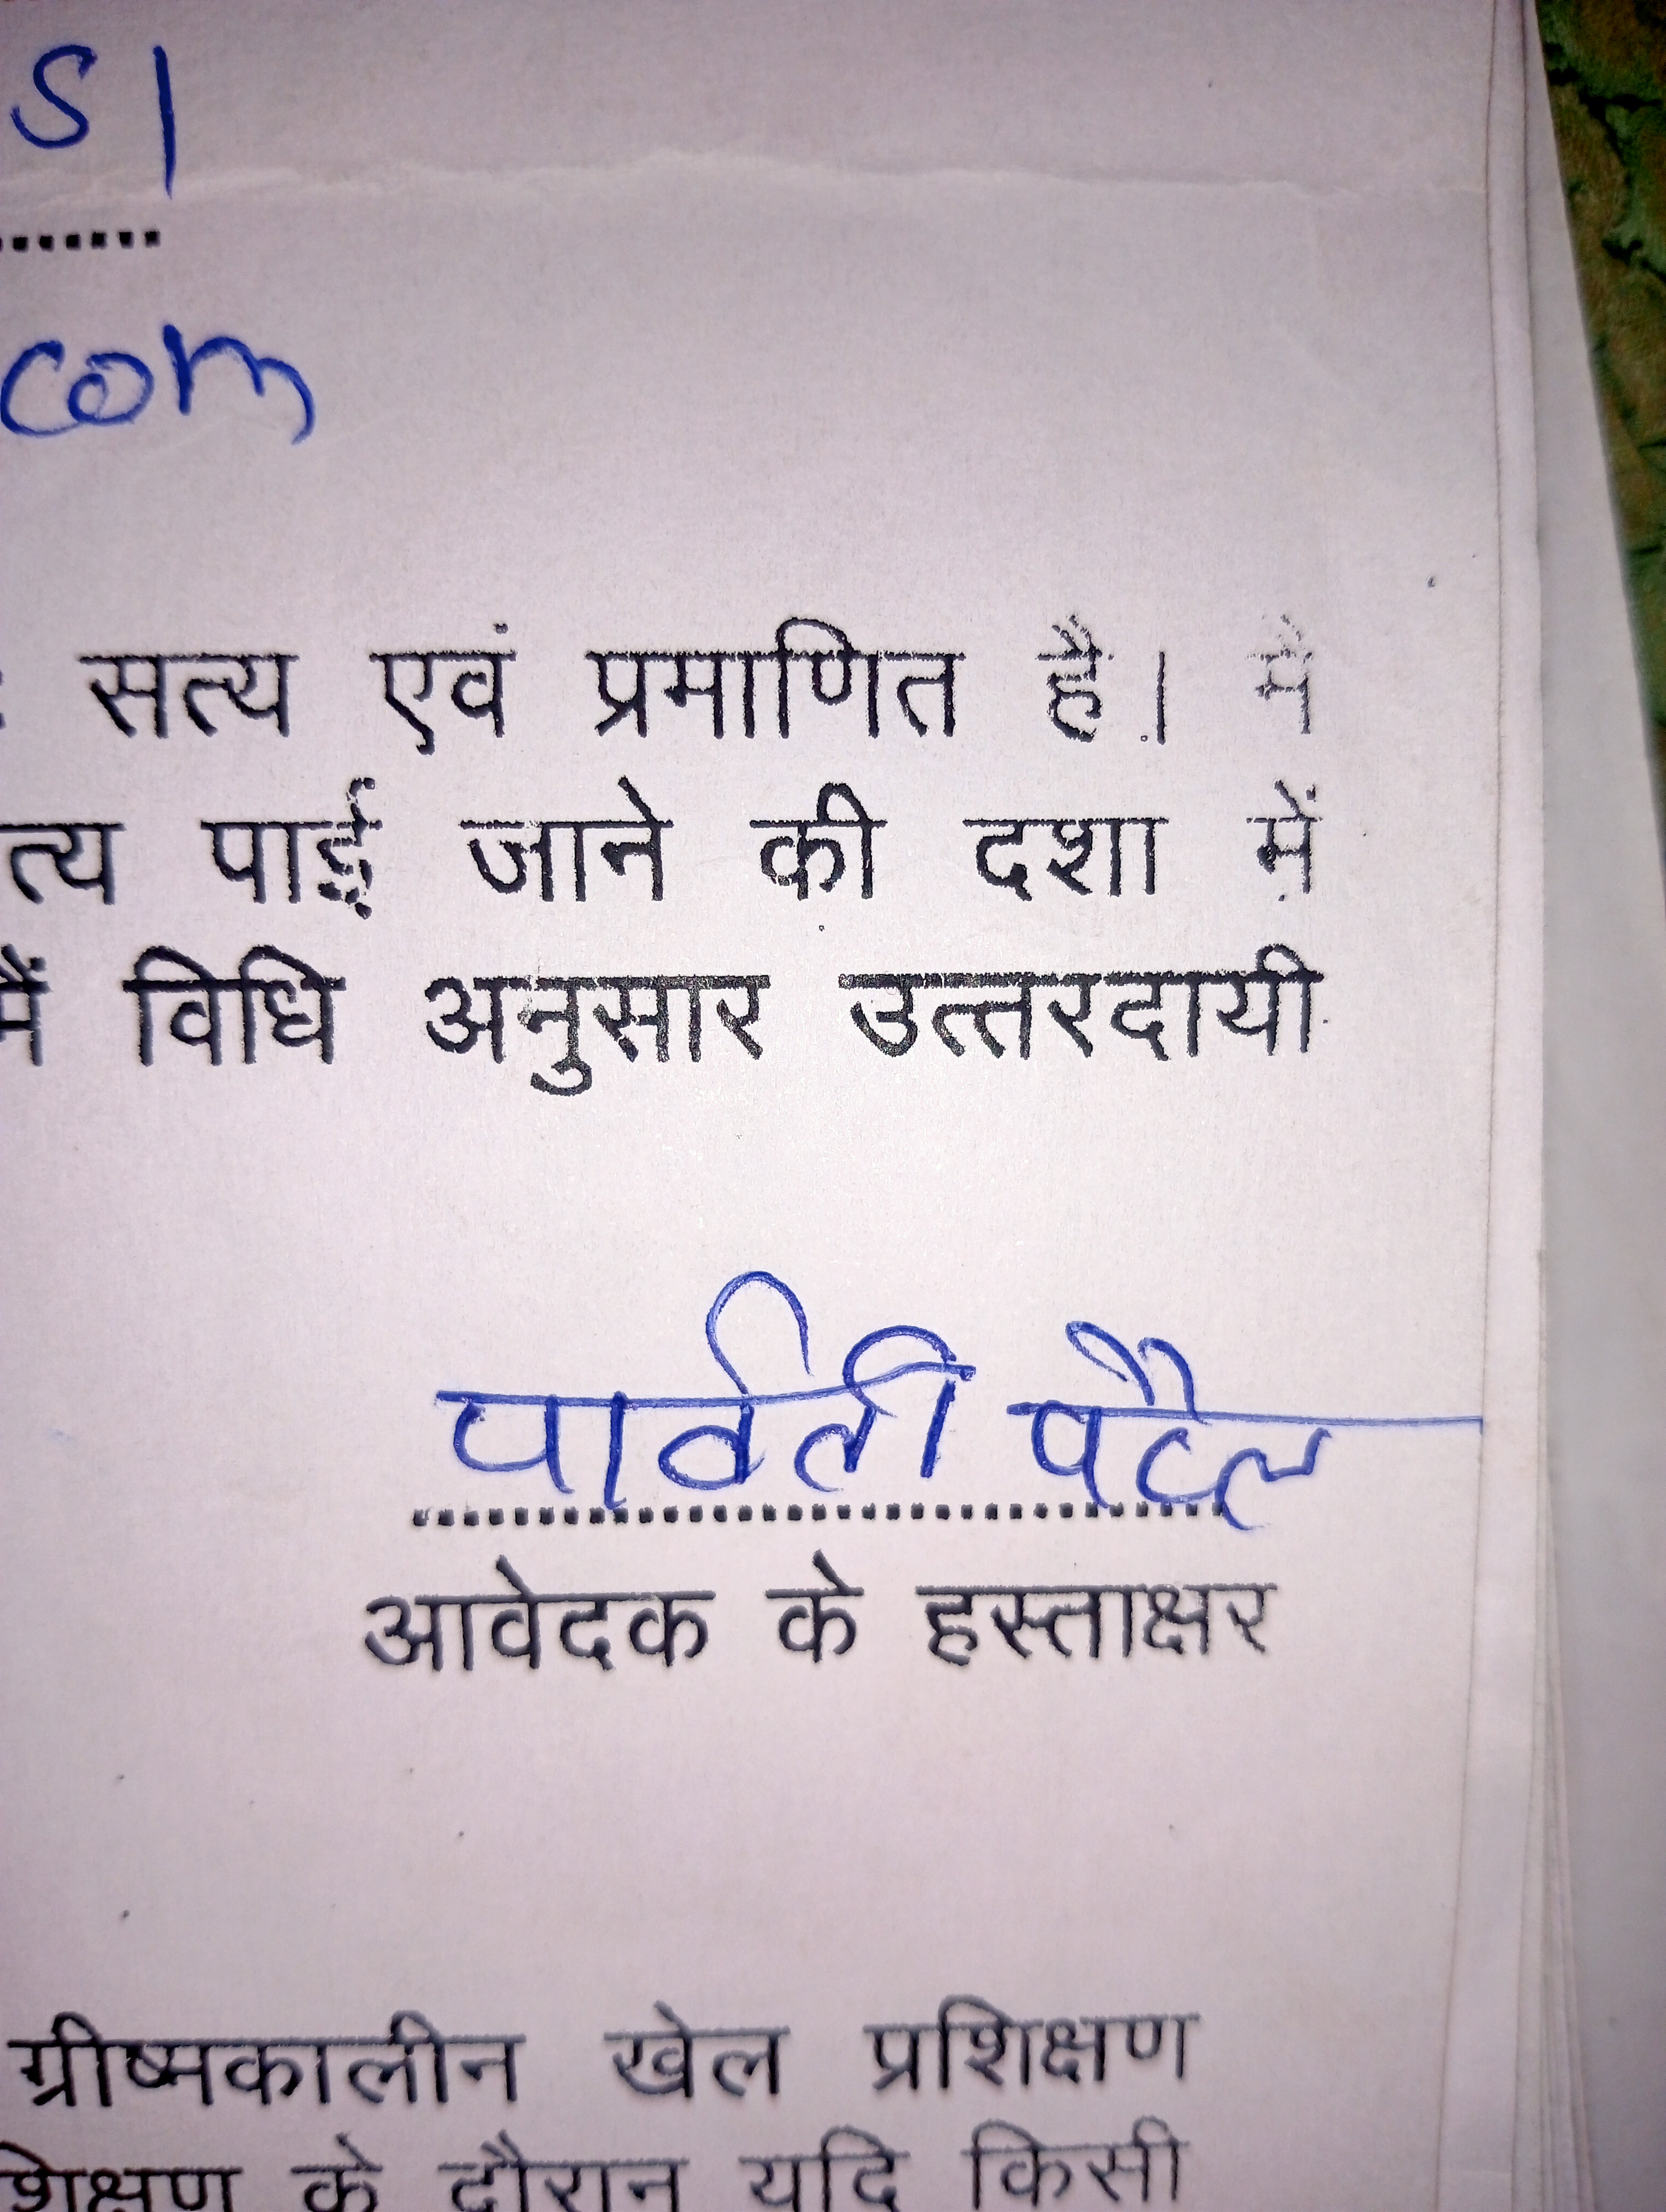 51
com
सत्य एवं प्रमाणित है। मैं
त्य पाई जाने की दशा में
में विधि अनुसार उत्तरदायी
पार्वती पटैल
आवेदक के हस्ताक्षर
ग्रीष्मकालीन खेल प्रशिक्षण
शिक्षण के दौरान यदि किसी